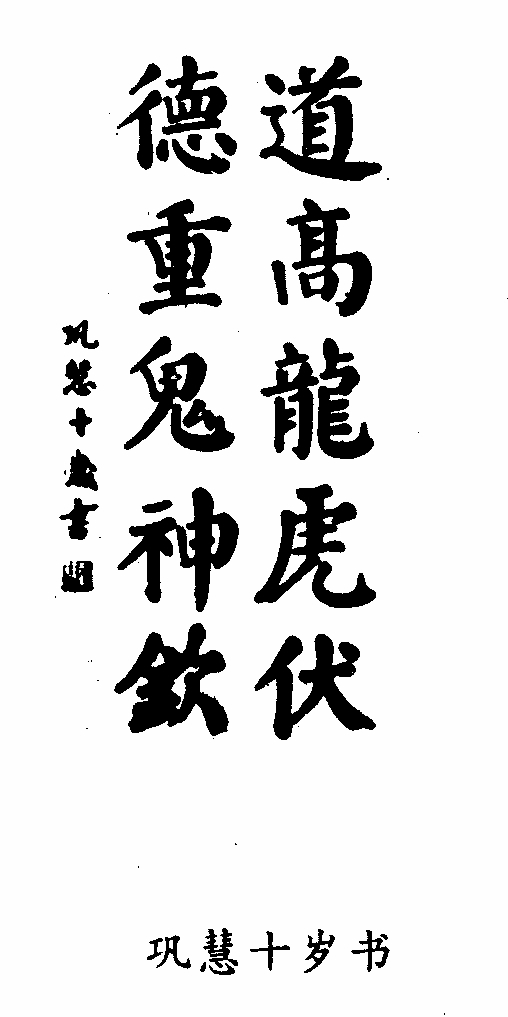 道高龍虎伏
德重鬼神欽
巩慧十歲書
巩慧十岁书